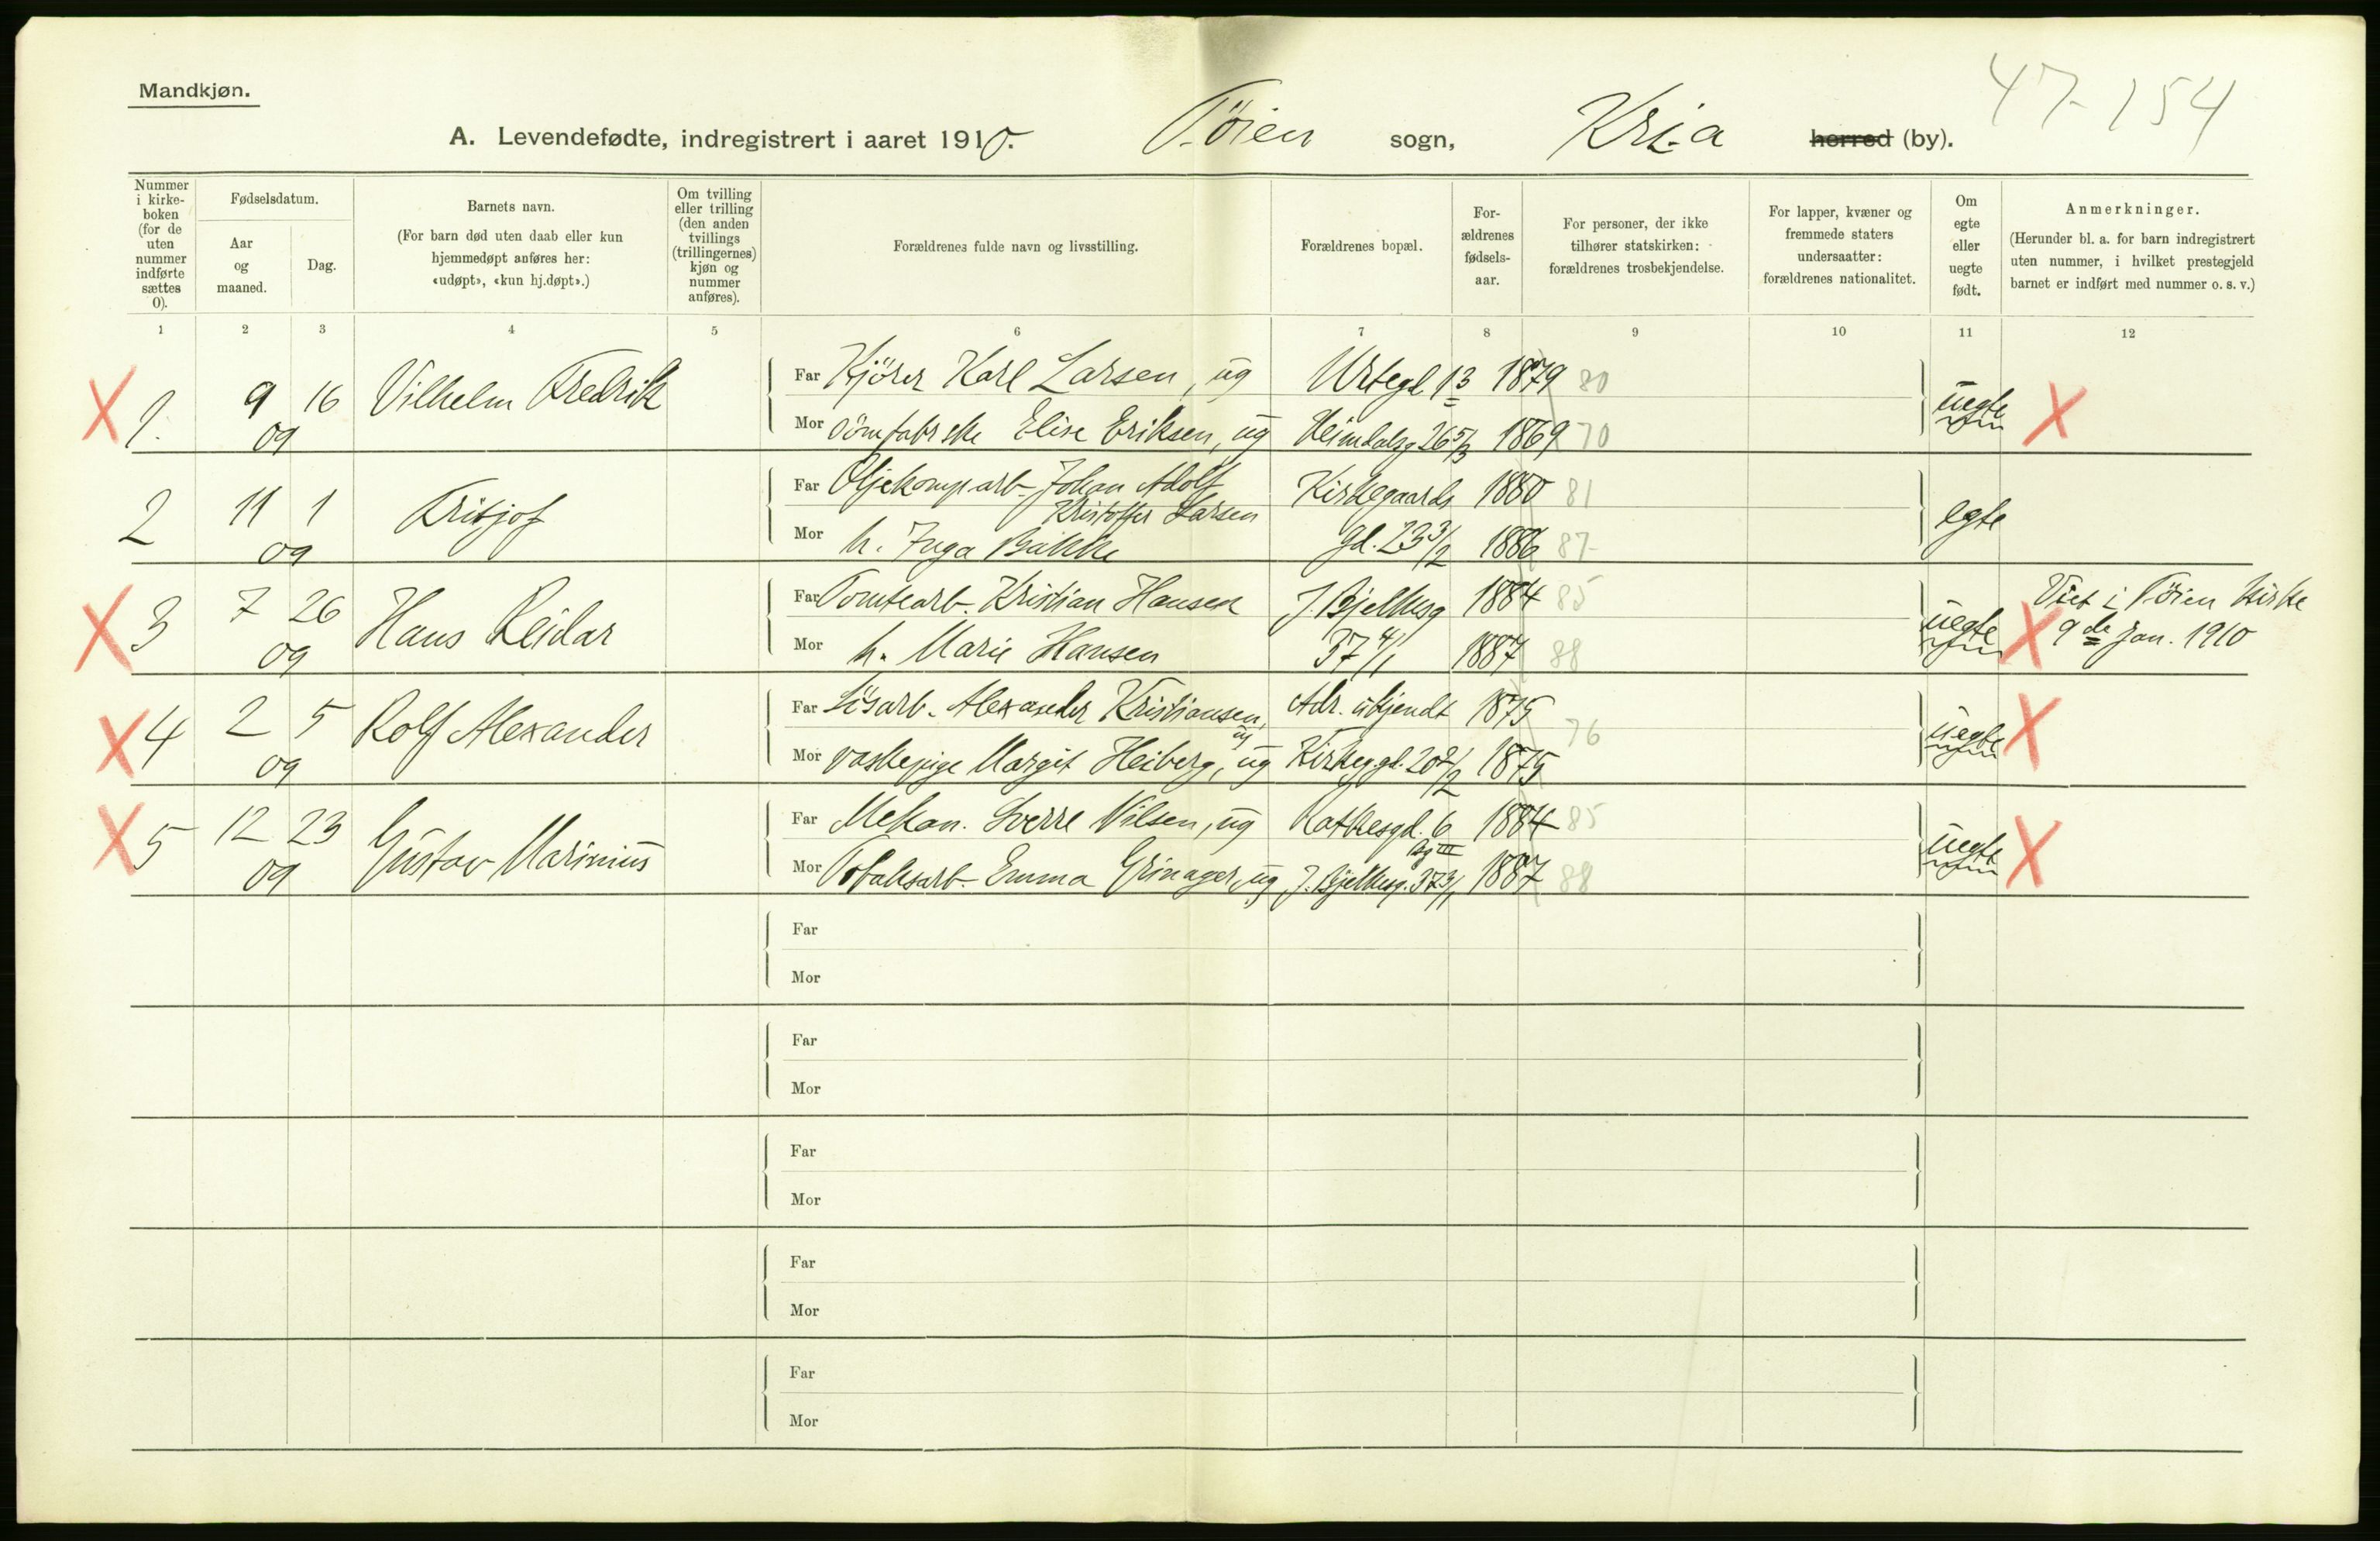 Mandkjøn.
47-154
A. Levendefødte, indregistrert i aaret 1910. Tøien sogn, Kria herred (by).
Nummer i kirke-boken (for de uten nummer indførte sættes 0).
Fødselsdatum.
Aar og maaned.
Dag.
Barnets navn.
(For barn død uten daab eller kun hjemmedøpt anføres her: «udøpt», «kun hj.døpt».)
Om tvilling eller trilling (den anden tvillings (trillingernes) kjøn og nummer anføres).
Forældrenes fulde navn og livsstilling.
Forældrenes bopæl.
For-ældrenes fødsels-aar.
For personer, der ikke tilhører statskirken: forældrenes trosbekjendelse.
For lapper, kvæner og fremmede staters undersaatter: forældrenes nationalitet.
Om egte eller uegte født.
Anmerkninger.
(Herunder bl. a. for barn indregistrert uten nummer, i hvilket prestegjeld barnet er indført med nummer o. s. v.)
1 2 3 4 5 6 7 8 9 10 11 12
X 1. 9 09 16 Vilhelm Fredrik
Far Kjører Karl Larsen, ug Urtegd 13 1879 80
Mor sömfabrske Elise Eriksen, ug Heimdalsg 26 5/3 1869 70
uegte X
2 11 09 1 Fritjof
Far Oljekomp.arb. Johan Adolf Kristoffer Larsen Kirkegaards 1880 81
Mor h. Inga Bakke gd. 23 3/2 1886 87
egte
X 3 7 09 26 Hans Reidar
Far Tomtearb. Kristian Hansen J. Bjelkesg 1884 85
Mor h. Marie Hansen 37 4/1 1887 88
uegte X Viet i Tøien kirke
9de Jan. 1910
X 4 2 09 5 Rolf Alexander
Far Lösarb. Alexander Kristiansen, ug Adr. ubjendt 1875 76
Mor vaskepige Margit Heiberg, ug Kirkeg.gd. 20 2/2 1875
uegte X
X 5 12 09 23 Gustav Marinius
Far Mekan. Sverre Nilsen, ug Ratkesgd. 6 1884 85
Bg III
Mor Tobaksarb. Emma Grinager, ug J. Bjelkesg. 37 3/1 1887 88
uegte X
Far
Mor
Far
Mor
Far
Mor
Far
Mor
Far
Mor